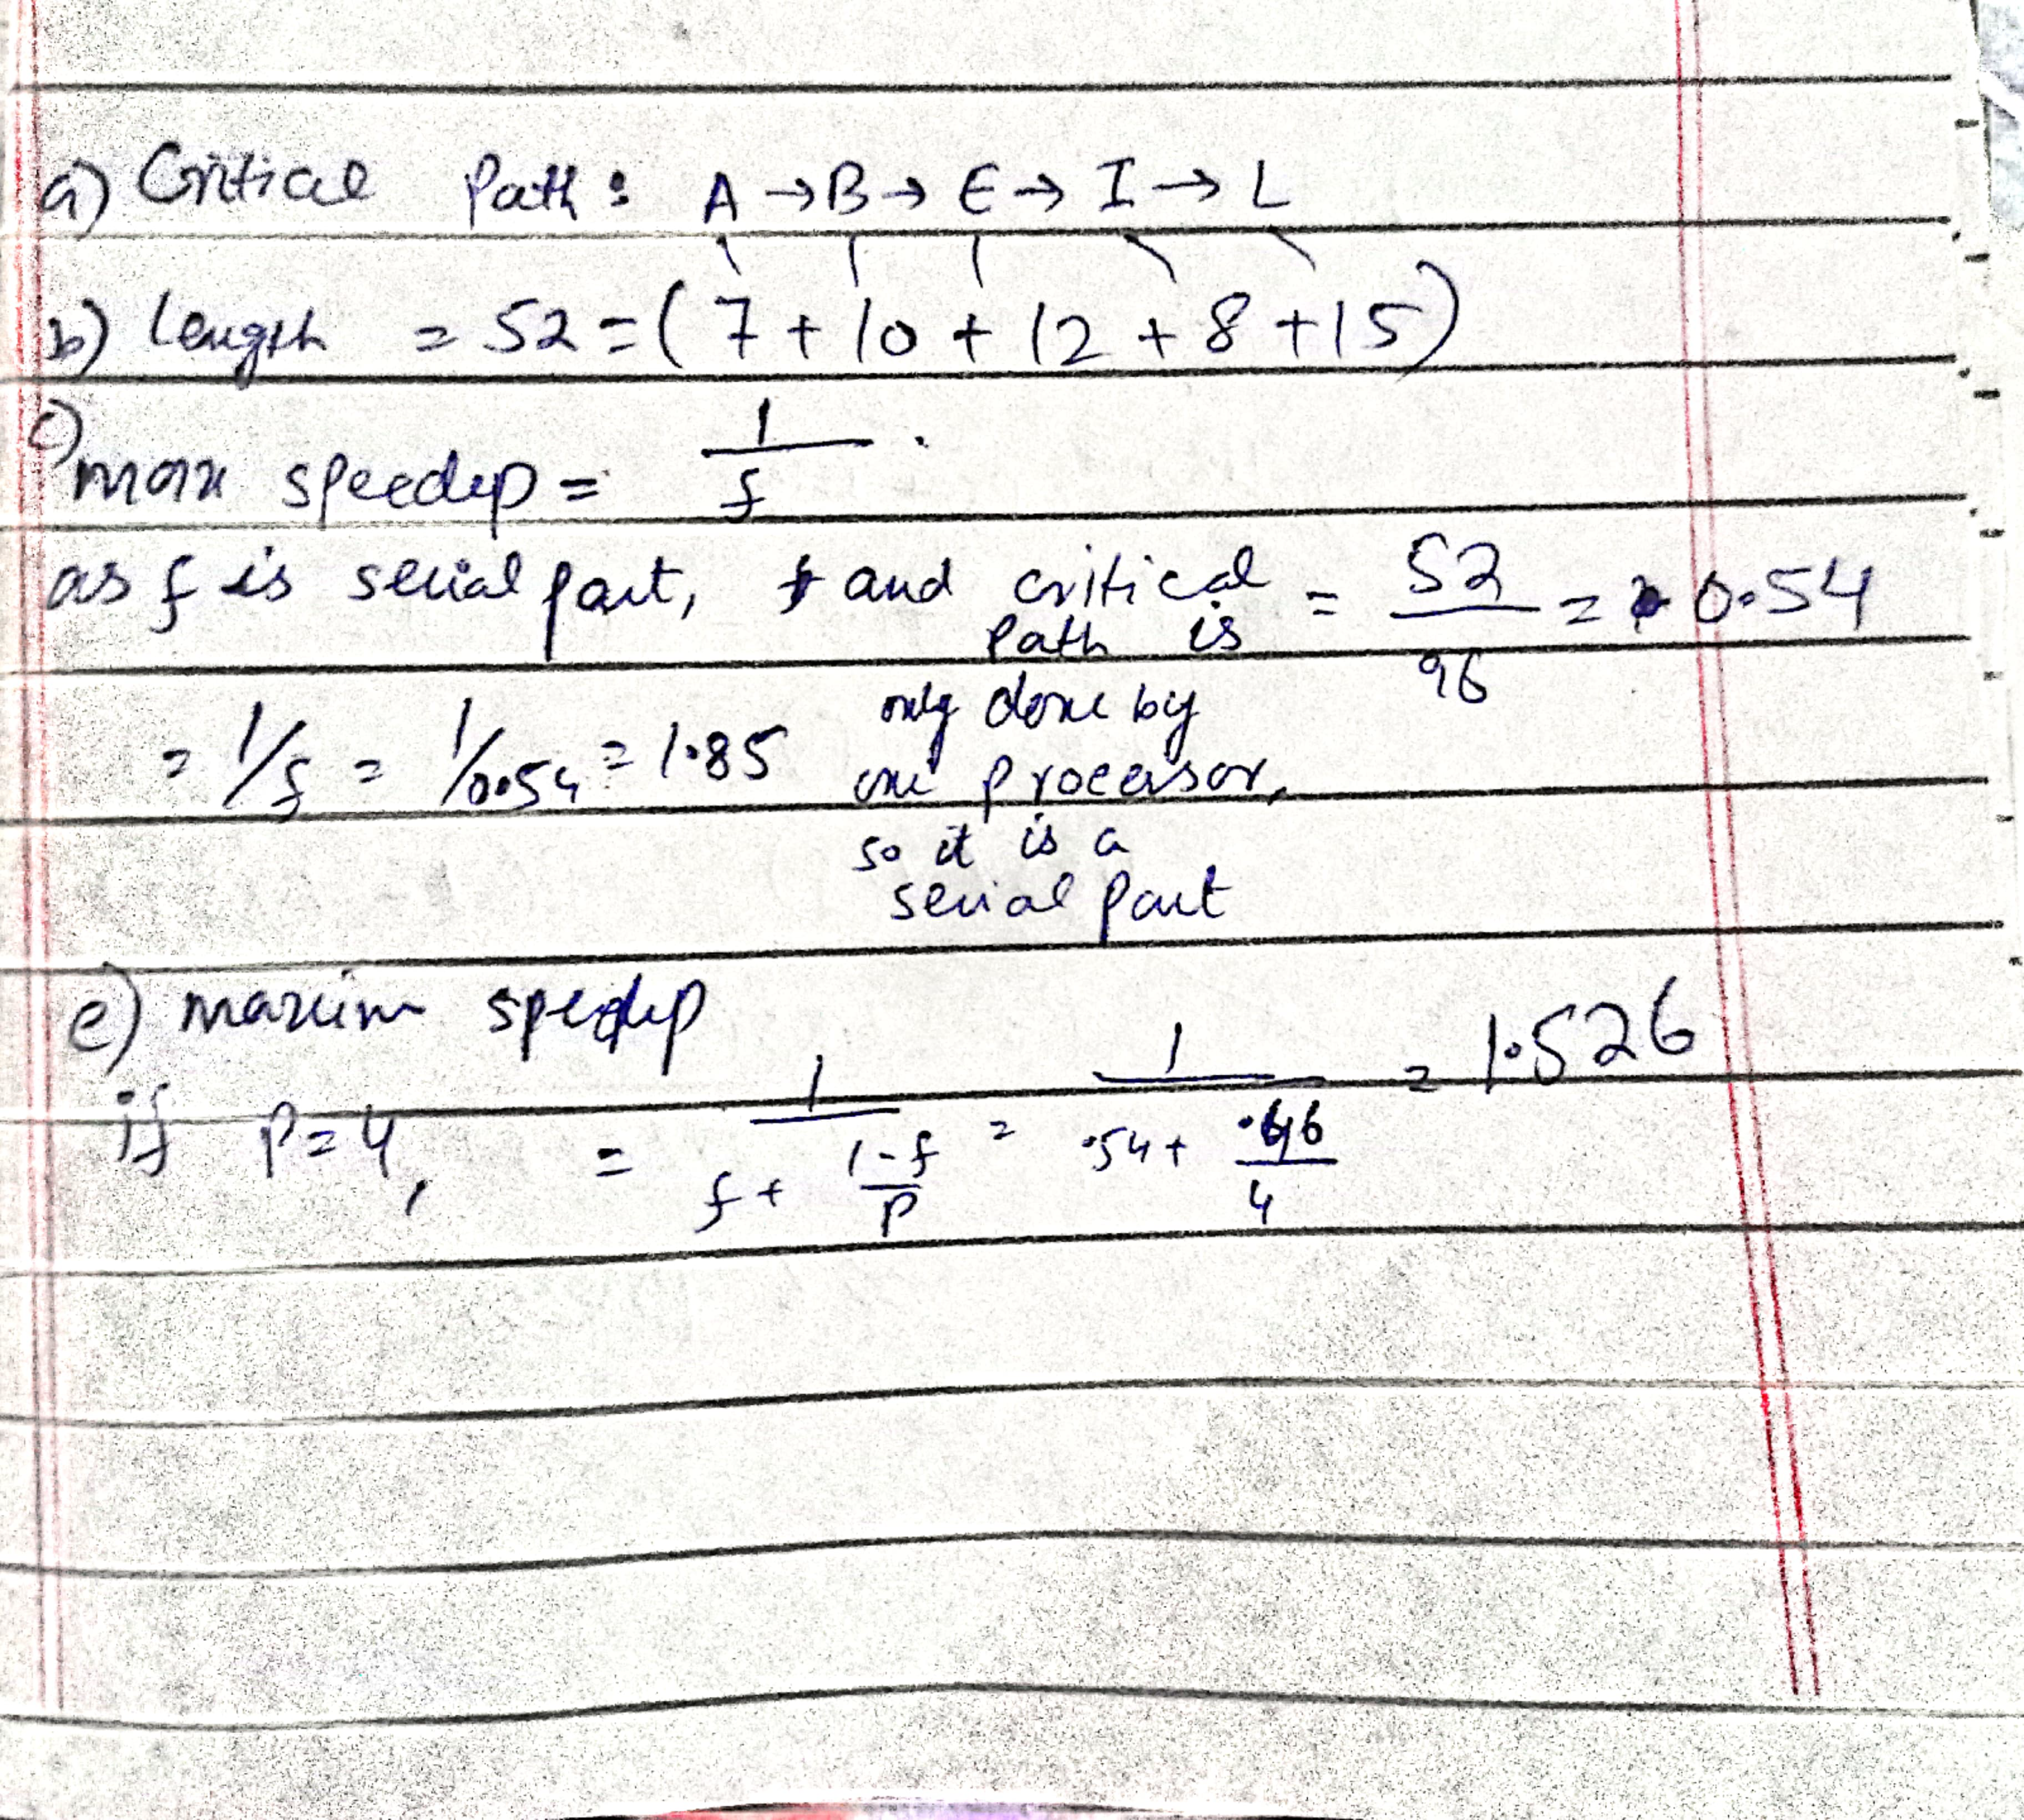 a) Critical Path : A → B → E → I → L
b) Length = 52 = ( 7 + 10 + 12 + 8 + 15 )
c)
max speedup = 1/f .
as f is serial part, and critical path is only done by one processor, so it is a serial part = 52/96 = 0.54
= 1/f = 1/0.54 = 1.85
e) maxim speedup
if P=4, = 1/(f + (1-f)/P) = 1/(.54 + .46/4) = 1.526